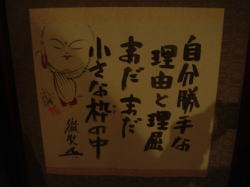 自分勝手な
理由と理屈
まだまだ
小さな枠の中